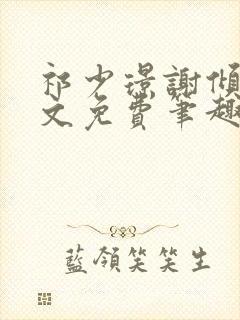 祁少璟謝傾
文免費筆趣
藍領笑笑生